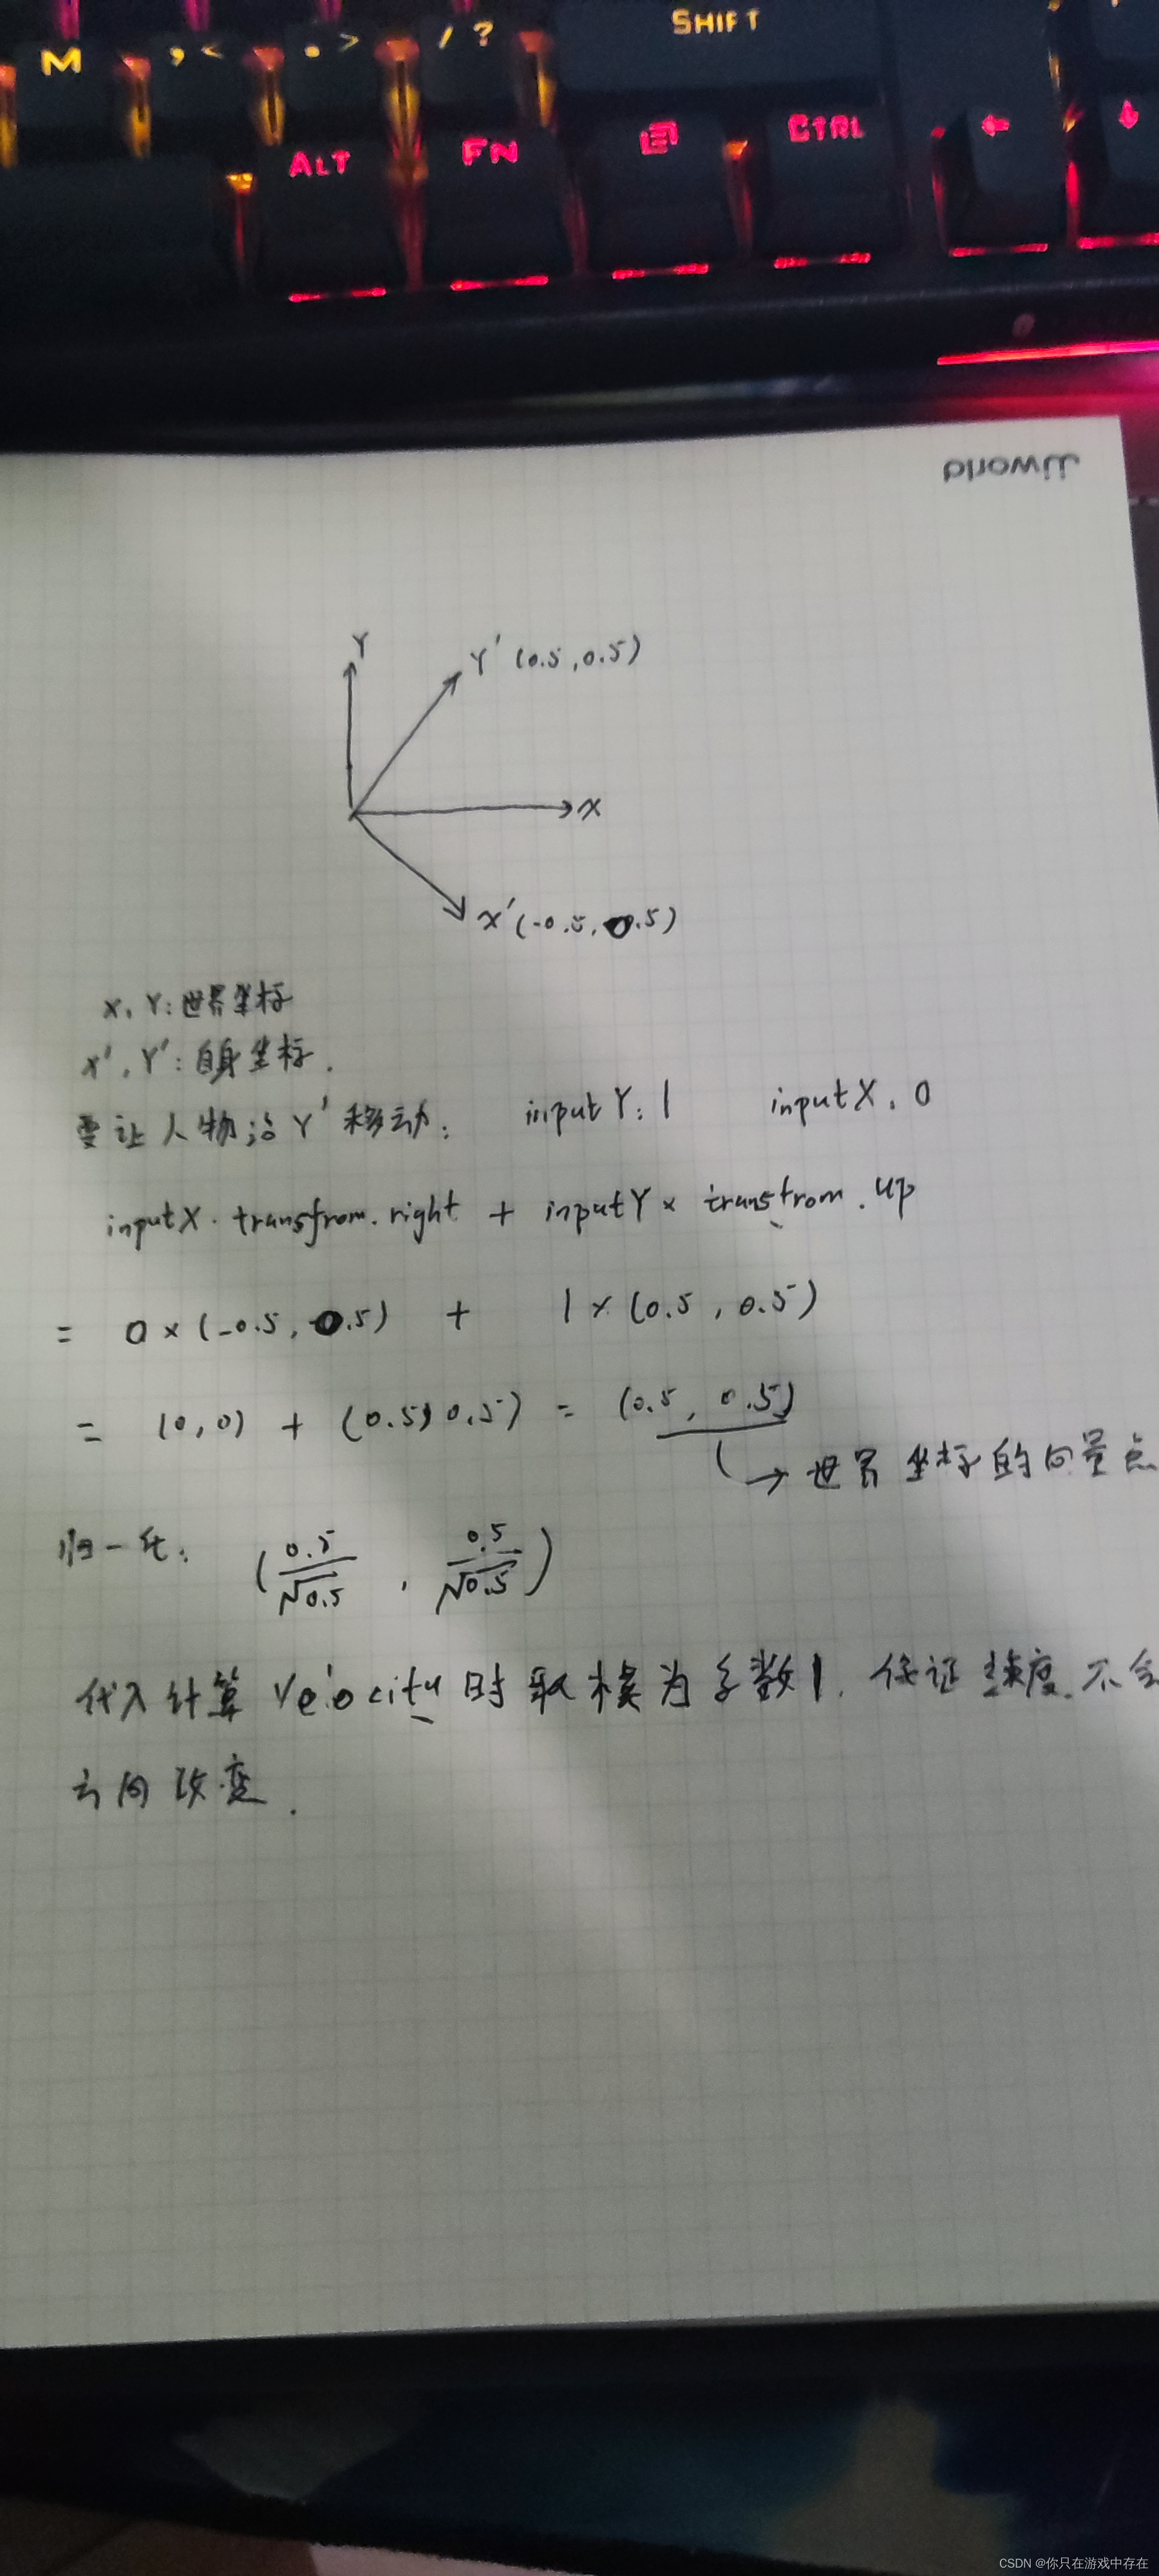 M , < . > / ? SHIFT
ALT FN CTRL
Y
Y' (0.5, 0.5)
X
X' (-0.5, 0.5)
X, Y: 世界坐标
X', Y': 自身坐标.
要让人物沿 Y' 移动: inputY: 1 inputX, 0
inputX · transfrom.right + inputY × transfrom.up
= 0 × (-0.5, 0.5) + 1 × (0.5, 0.5)
= (0, 0) + (0.5, 0.5) = (0.5, 0.5)
→ 世界坐标的向量点
归一化: (0.5/√0.5, 0.5/√0.5)
代入计算 Velocity 时取模为 数1. 保证速度不会
方向改变.
CSDN @你只在游戏中存在